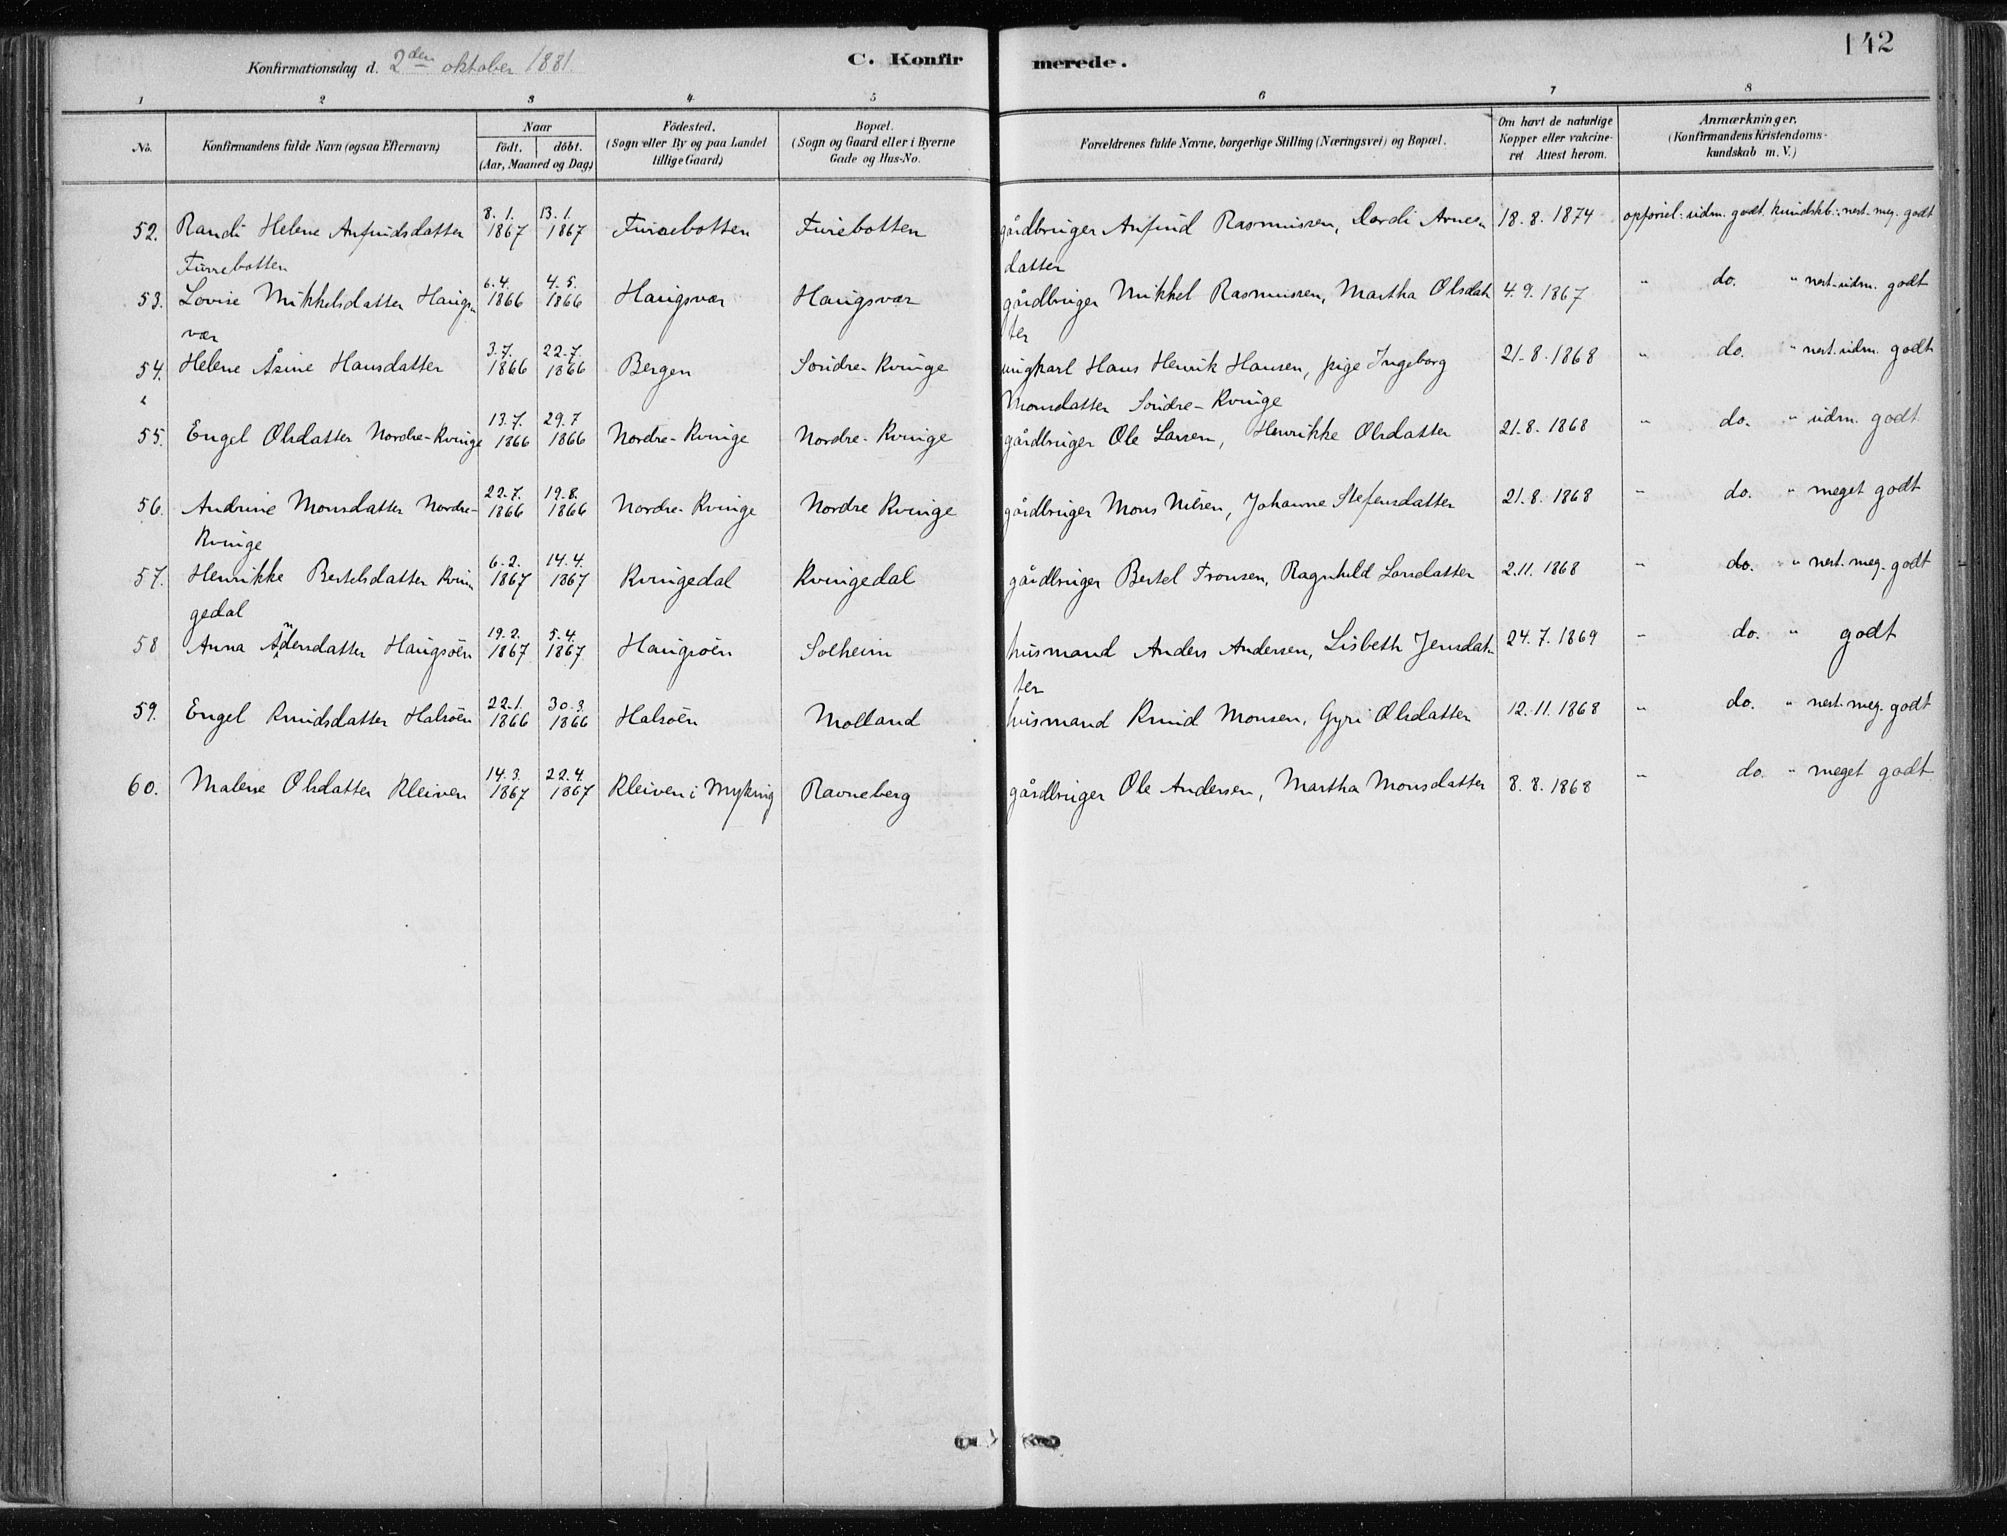 Konfirmationsdag d. 2den oktober 1881.
C. Konfirmerede.
142
1 2 3 4 5 6 7 8
No.
Konfirmandens fulde Navn (ogsaa Efternavn)
Naar
födt. döbt.
(Aar, Maaned og Dag)
Födested.
(Sogn eller By og paa Landet
tillige Gaard)
Bopæl.
(Sogn og Gaard eller i Byerne
Gade og Hus-No.
Forældrenes fulde Navne, borgerlige Stilling (Næringsvei) og Bopæl.
Om havt de naturlige
Kopper eller vakcine-
ret Attest herom.
Anmærkninger.
(Konfirmandens Kristendoms-
kundskab m. V.)
52. Randi Helene Anfindsdatter 8.1. 1867 13.1. 1867 Furrebotten Furebotten gårdbruger Anfind Rasmussen, Dordi Arnes- 18.8.1874 opførsel: udm. godt, kundskb.: nest. meg. godt
Furrebotten datter
53. Lovise Mikkelsdatter Haugs- 6.4. 1866 4.5. 1866 Haugsvær Haugsvær gårdbruger Mikkel Rasmussen, Martha Olsdat- 4.9.1867 " do. " nest. udm. godt
vær ter
54. Helene Åsine Hansdatter 3.7. 1866 22.7. 1866 Bergen Søndre-Kvinge ungkarl Hans Henrik Hansen, pige Ingeborg 21.8.1868 " do. " nest. udm. godt
Monsdatter Søndre-Kvinge
55. Engel Olsdatter Nordre-Kvinge 13.7. 1866 29.7 1866 Nordre-Kvinge Nordre-Kvinge gårdbruger Ole Larsen, Henrikke Olsdatter 21.8.1868 " do. " udm. godt
56. Andrine Monsdatter Nordre- 22.7. 1866 19.8. 1866 Nordre-Kvinge Nordre Kvinge gårdbruger Mons Nilsen, Johanne Stefensdatter 21.8.1868 " do. " meget godt
Kvinge
57. Henrikke Bertelsdatter Kvin- 6.2. 1867 14.4. 1867 Kvingedal Kvingedal gårdbruger Bertel Tronsen, Ragnhild Larsdatter 2.11.1868 " do. " nest. meg. godt
gedal
58 Anna Andersdatter Haugsøen 19.2. 1867 5.4. 1867 Haugsøen Solheim husmand Anders Andersen, Lisbeth Jensdat- 24.7.1869 " do. " godt
ter
59. Engel Knudsdatter Halsøen 22.1. 1866 30.3. 1866 Halsøen Molland husmand Knud Monsen, Gyri Olsdatter 12.11.1868 " do. " nest. meg. godt
60. Malene Olsdatter Kleiven 14.3. 1867 22.4. 1867 Kleiven i Myking Ravneberg gårdbruger Ole Andersen, Martha Monsdatter 8.8.1868 " do. " meget godt